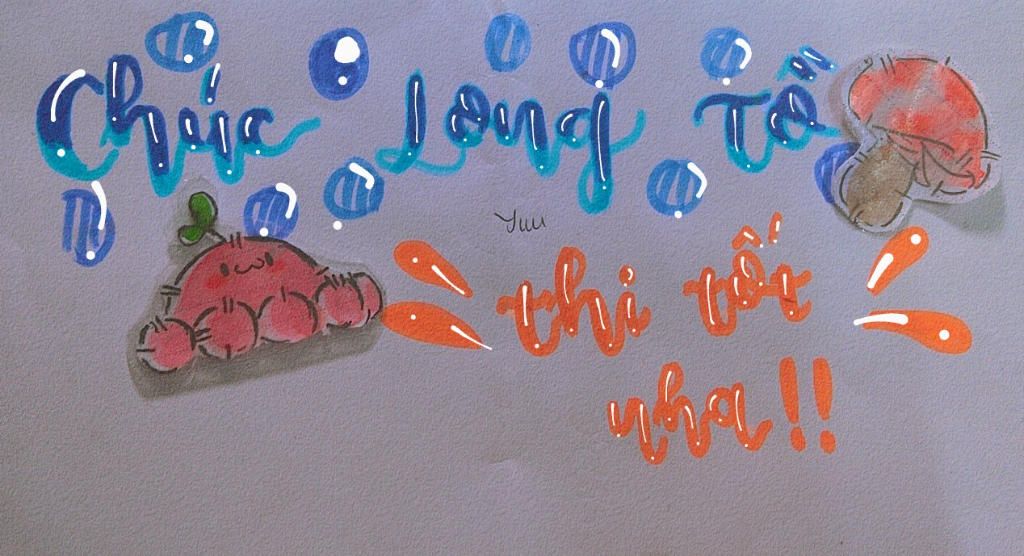 Chúc Long Tồ
Yuu
thi tốt
nha!!